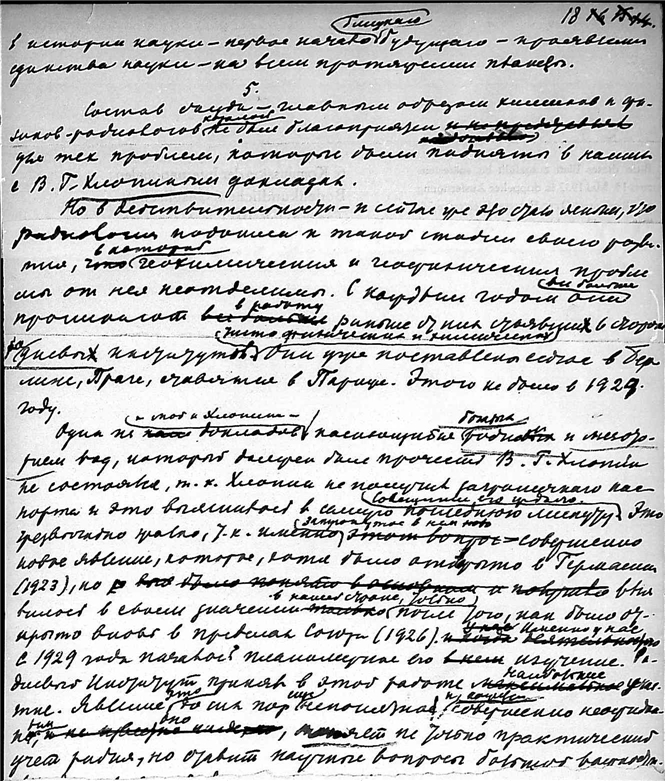 ближайшего
18
в истории науки – первое начало будущего – проявление
единства науки – на всем протяжении планеты.
5.
Состав съезда – главным образом химиков и фи-
зиков-радиологов не был благоприятен
для тех проблем, которые были подняты в наших
с В. Г. Хлопиным докладах.
Но в действительности – и сейчас уже это стало ясным, что
радиология подошла к такой стадии своего разви-
в которой
тия, геохимические и геофизические пробле-
все больше
мы от нея неотделимы. С каждым годом они
в работу
проникают раньше от них стоявших в стороне
чисто физических и химических
радиевых институтов. Они уже поставлены сейчас в Бер-
лине, Праге, ставятся в Париже. Этого не было в 1929
году.
– мой и Хлопина –
Один из докладов касающийся радия и мезото-
рием вод, который должен был прочесть В. Г. Хлопин
не состоялся, т. к. Хлопин не получил заграничного пас-
порта и это выяснилось в самую последнюю минуту. Это
затронутое в нем
чрезвычайно жалко, т. к. именно совершенно
новое явление, которое, хотя было открыто в Германии
(1923), но выя-
в нашей стране,
вилось в своем значении после того, как было от-
крыто вновь в пределах Союза (1926).
именно у нас
С 1929 года началось планомерное его изучение. Ра-
диевый Институт принял в этой работе участие
наибольшее
тие. Явление это до сих пор еще совершенно неожидан-
но
не только практический
учет радия, но ставит научные вопросы большой важности